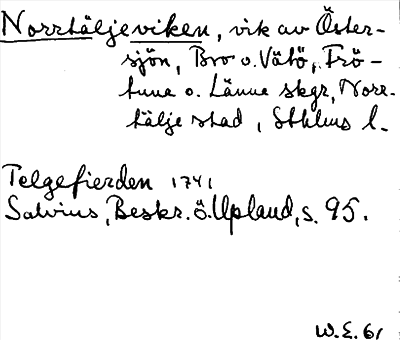 Norrtäljeviken, vik av Öster-
sjön, Bro o. Vätö, Frö-
tuna o. Länna skgr, Norr-
tälje stad, Sthlms l.
Telgefierden 1741
Salvius, Beskr. ö. Upland, s. 95.
W.E. 61